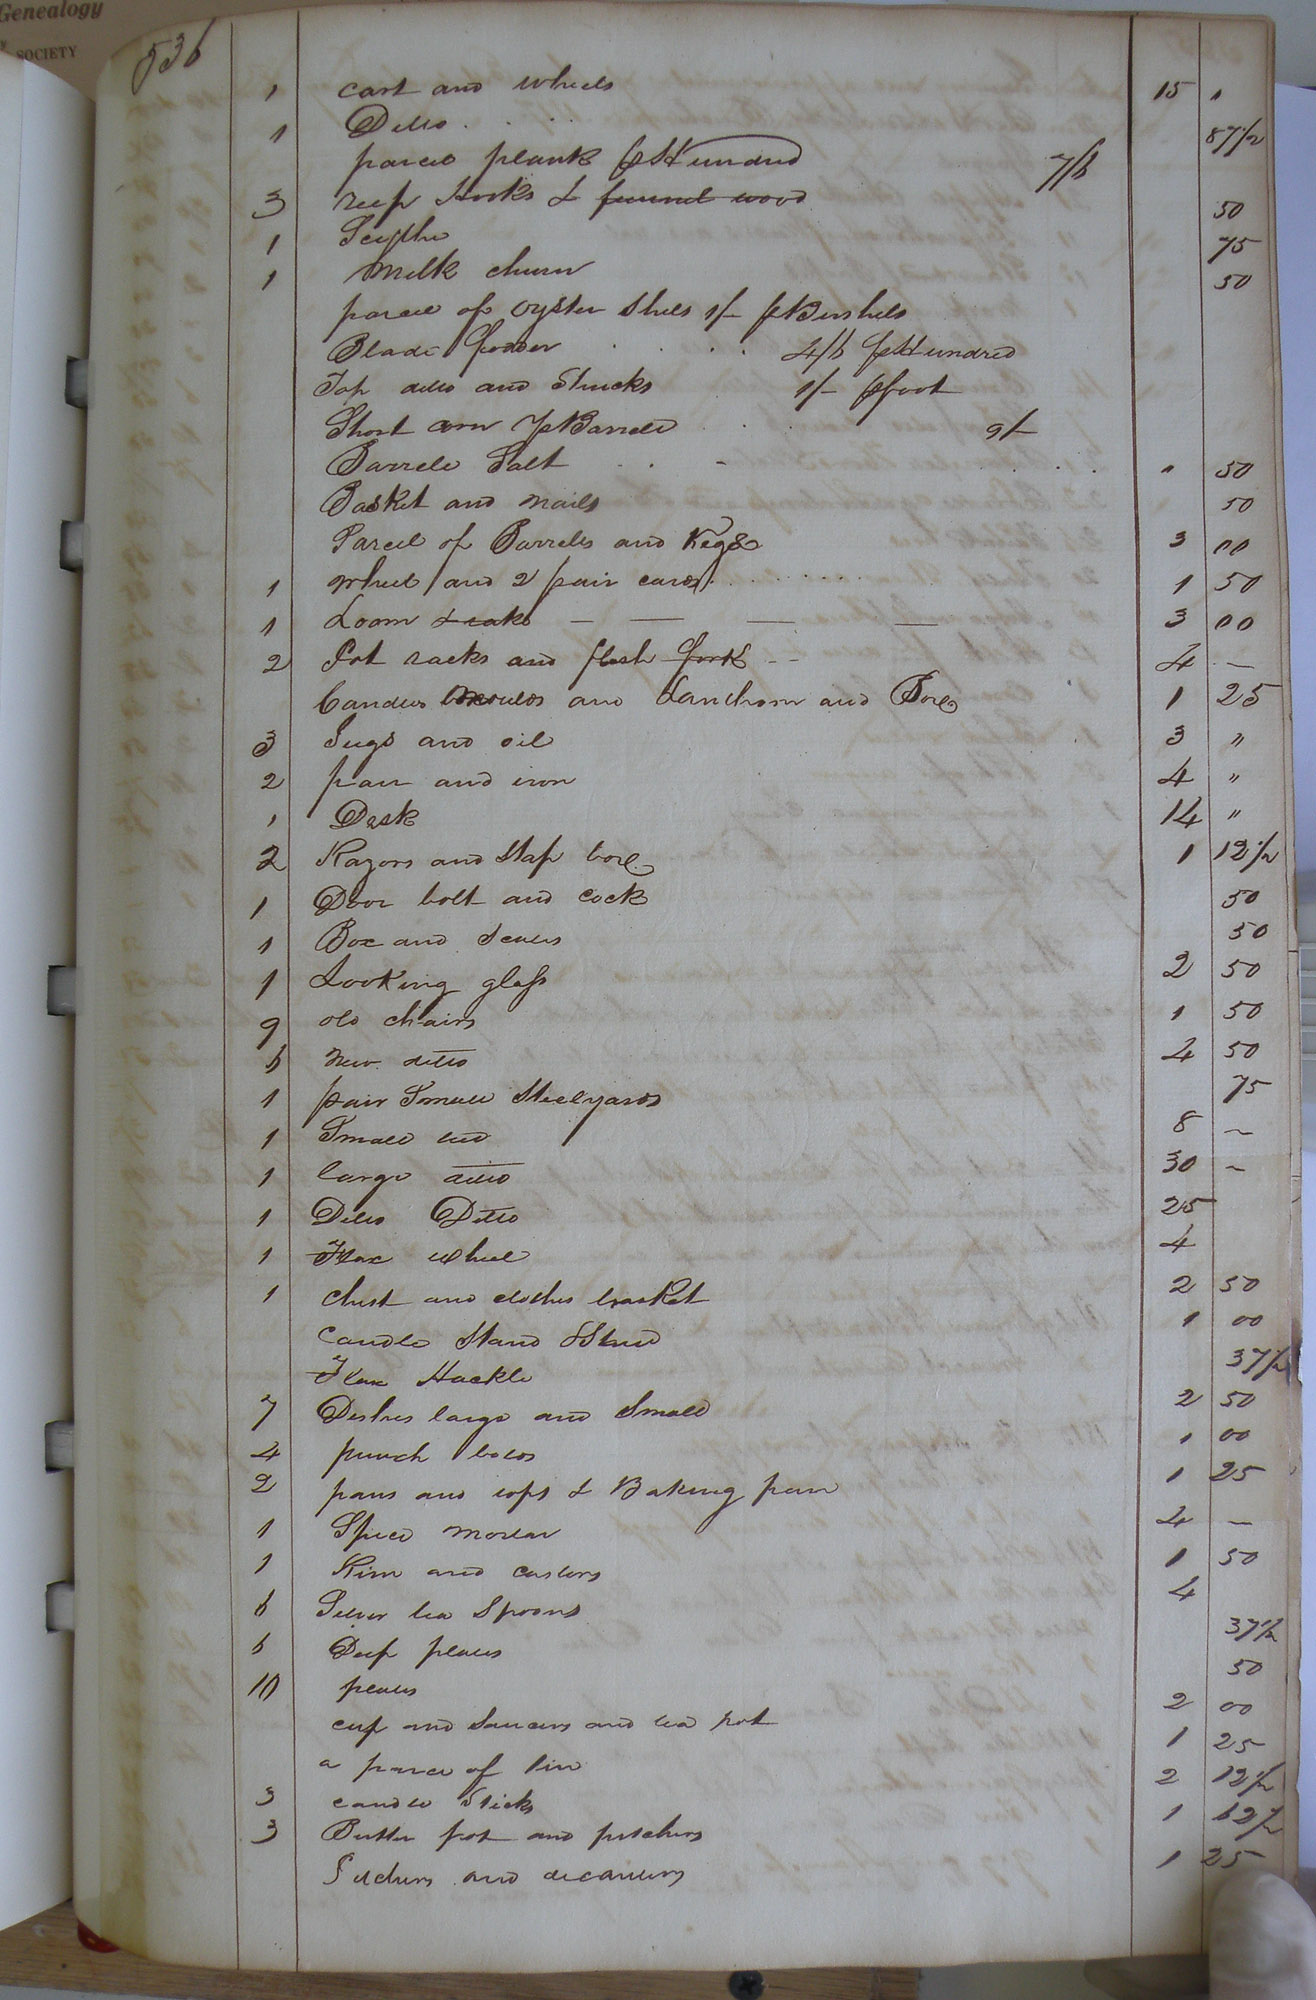 Genealogy
SOCIETY
536
1 cart and wheels 15 "
1 Ditto . . . 87 1/2
parcel plank p Hundred 7/6
3 reep Hooks & funnel wood 50
1 Scythe 75
1 Milk churn 50
parcel of oyster shels 1/- p Bushels
Blade fodder . . . . 4/6 p Hundred
Top ditto and Shucks 1/- p foot
Short corn p Barrele . . 9/-
Barrele Salt . . - . . . " 50
Basket and nails 50
Parcel of Barrels and Kegs 3 00
1 wheel and 2 pair cards . . . . . . 1 50
1 Loom — — — — 3 00
2 Pot racks and flesh fork - - 4 —
Candus moulds and Lanthorn and Box 1 25
3 Jugs and oil 3 "
2 pair and iron 4 "
1 Desk 14 "
2 Razors and Stap box 1 12 1/2
1 Door bolt and cock 50
1 Box and Scales 50
1 Looking glass 2 50
9 old chairs 1 50
6 new ditto 4 50
1 pair Small Steelyards 75
1 Small bed 8 ~
1 large ditto 30 ~
1 Ditto Ditto 25
1 Flax wheel 4
1 chest and clothes basket 2 50
candle Stand 1 00
Flax Hackle 37 1/2
7 Dishes large and Small 2 50
4 punch bowls 1 00
2 pans and cops & Baking pan 1 25
1 Spice mortar 4 —
1 and castors 1 50
6 Silver tea Spoons 4
6 Deep plates 37 1/2
10 plates 50
cup and Saucers and tea pot 2 00
a parcel of tin 1 25
3 candle Sticks 2 12 1/2
3 Butter pot and pitchers 1 62 1/2
Pitchers and decanters 1 25